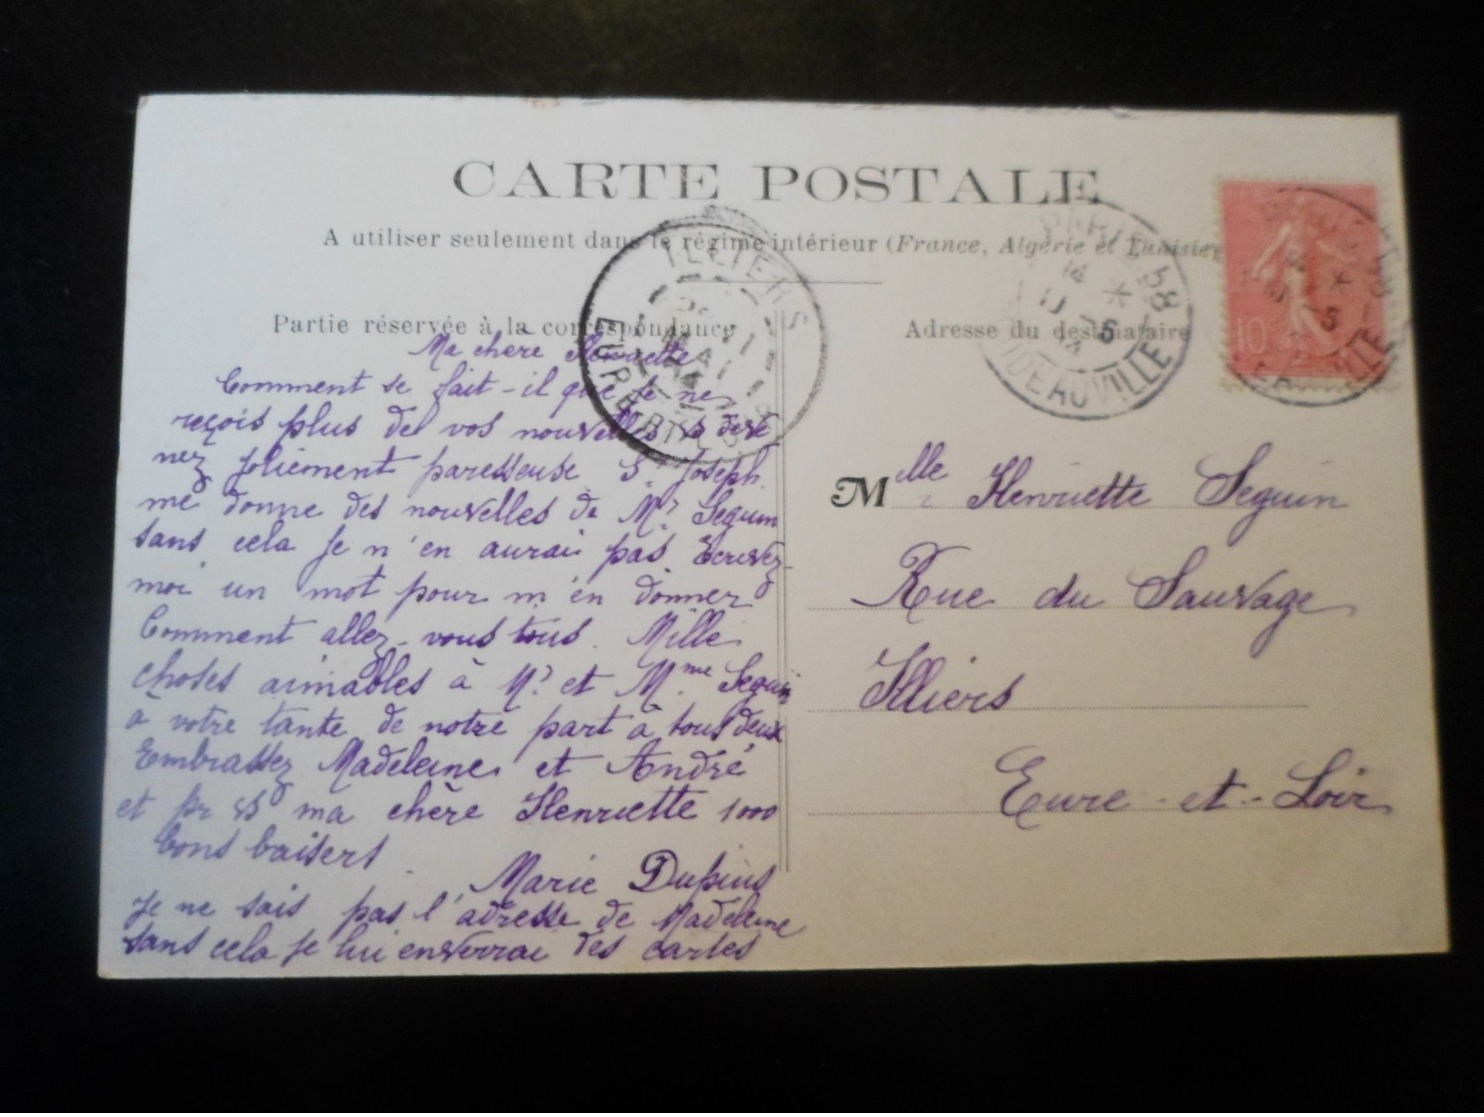 CARTE POSTALE
A utiliser seulement dans le régime intérieur (France, Algérie et Tunisie)
Partie réservée à la correspondance
Adresse du destinataire
ILLIERS
MAI
PARIS 58
14 *
5
10c
Ma chère Henriette
Comment se fait-il que je ne
reçois plus de vos nouvelles
nez joliement paresseuse S. Joseph.
me donne des nouvelles de Mr Seguin
sans cela je n'en aurai pas. Ecrivez-
moi un mot pour m'en donner
Comment allez-vous tous. Mille
choses aimables à Mr et Mme Seguin
à votre tante de notre part à tous deux
Embrassez Madeleine et André
et pr vs ma chère Henriette 1000
bons baisers
Marie Dupuis
Je ne sais pas l'adresse de Madeleine
sans cela je lui enverrai des cartes
Mlle Henriette Seguin
Rue du Sauvage
Illiers
Eure-et-Loir